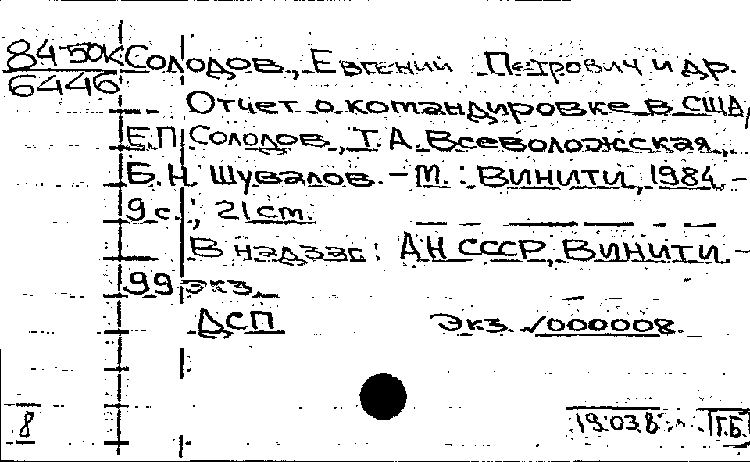 84-50к Солодов, Евгений Петрович и др.
6446
Отчет о командировке в США/
Е.П. Солодов, Т.А. Всеволожская,
Б.Н. Шувалов. - М. : ВИНИТИ, 1984. -
9 с. ; 21 см.
В надзаг: АН СССР, ВИНИТИ. -
99 экз.
ДСП Экз. √000008.
8 19.03.8 Г.Б.